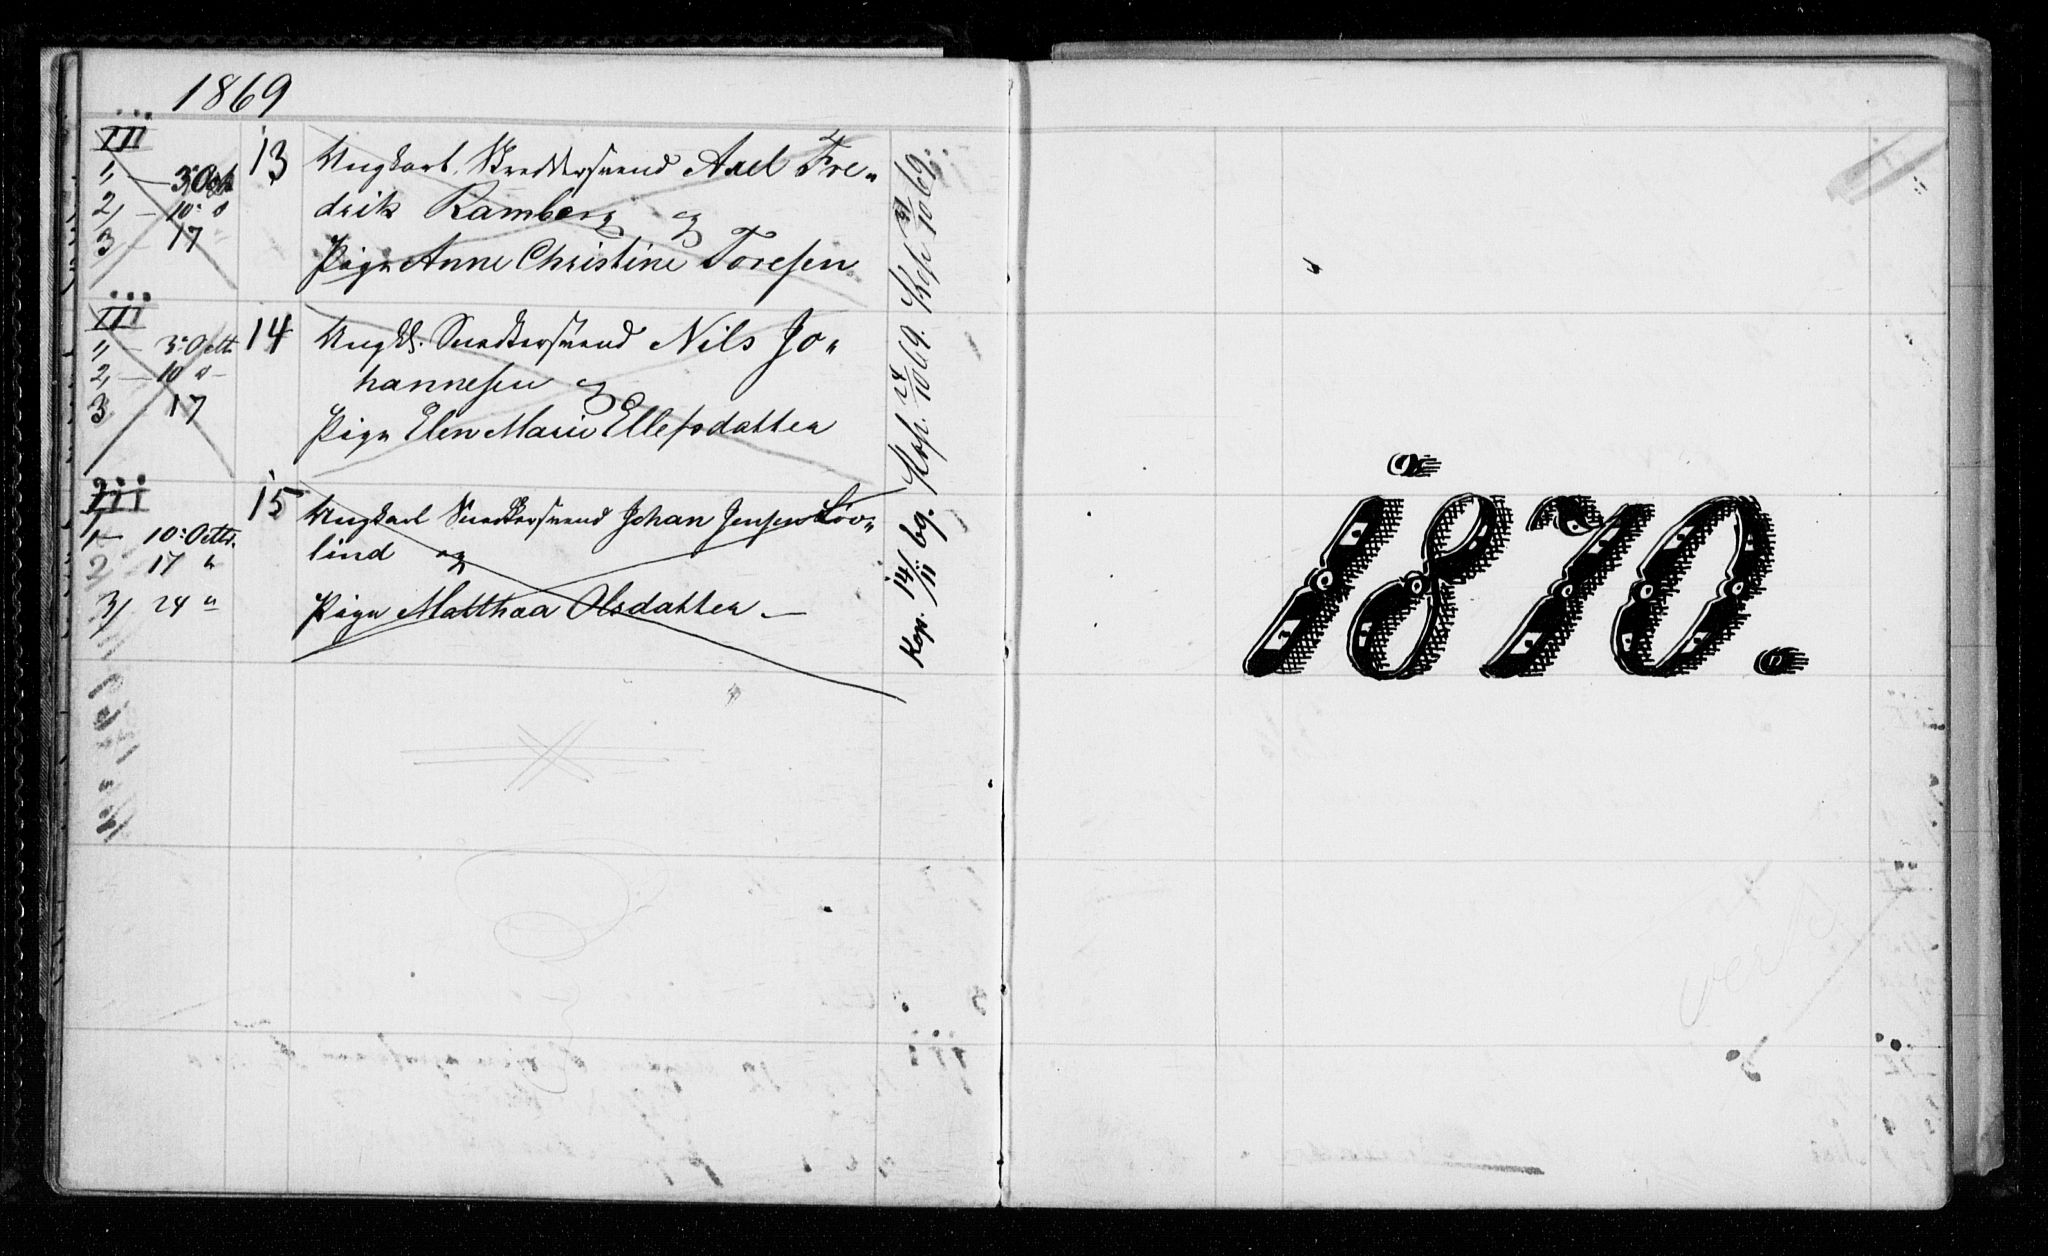 1869
III
1, — 3 Octb
2, — 10 "
3 — 17 "
13
Ungkarl Skreddersvend Axel Fre-
drik Ramberg og
Pige Anne Christine Toresen
Kop. 31/10 69.
III
1, — 3 Octb.
2, — 10 " —
3 17
14
Ungk. Snedkersvend Nils Jo-
hannesen og
Pige Elen Marie Ellefsdatter
Kop. 24/10 69.
III
1 — 10 Octb.
2, 17 "
3, 24 "
15
Ungkarl Snedkersvend Johan Jensen Löv-
lind og
Pige Matthea Olsdatter —
Kop. 14/11 69.
1870.